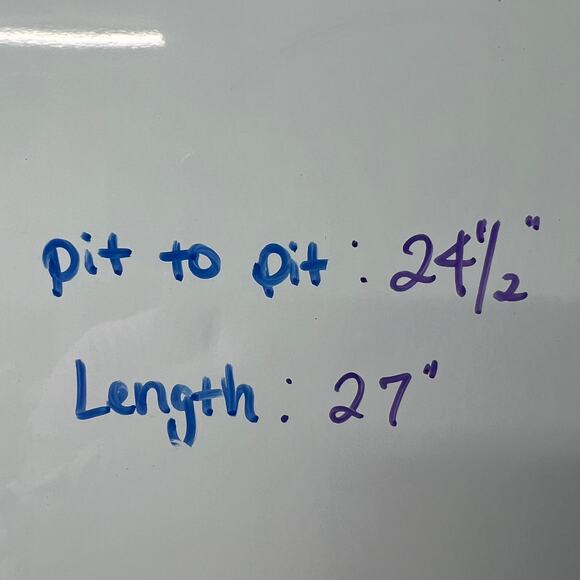 pit to pit : 24 1/2"
Length : 27"